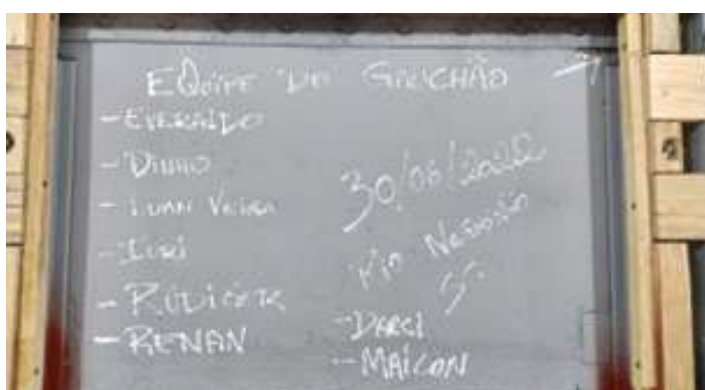 EQUIPE DO GAUCHÃO
- EVERALDO
- DINHO
- LUAN VEIGA
- IURI
- RODINER
- RENAN
30/06/2022
RIO NEGRINHO
SC
- DARCI
- MAICON